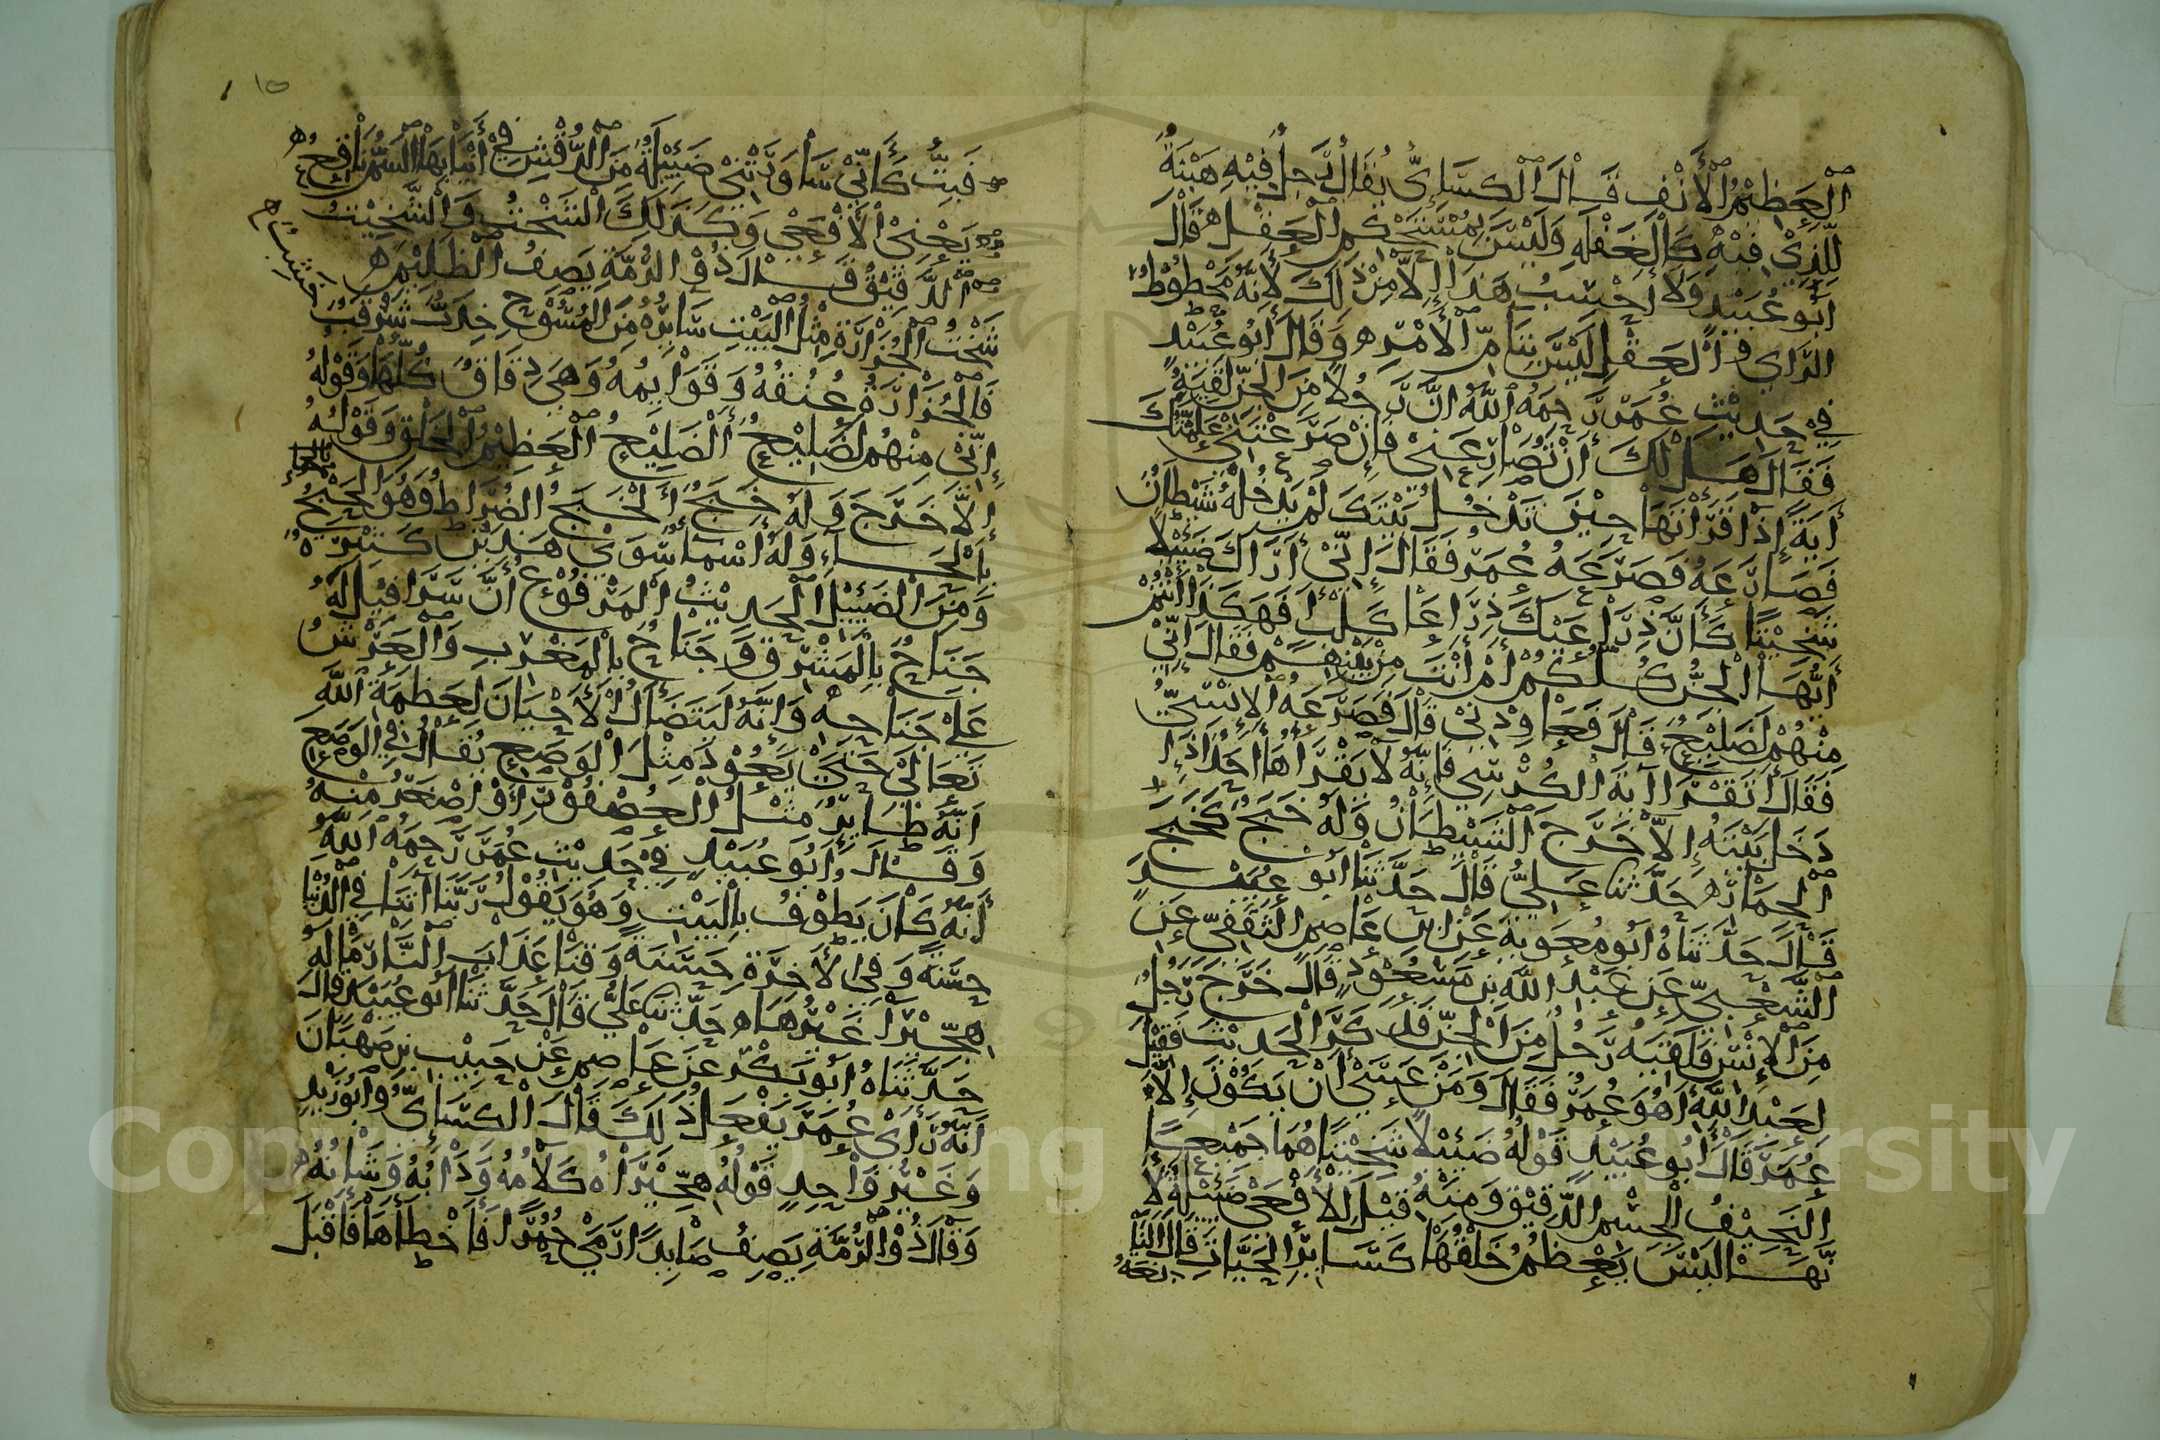 الْعَظِيْمُ الْأَنْفِ قَالَ الْكِسَائِيُّ يُقَالُ رَجُلٌ فِيْهِ هَبْتَةٌ
لِلَّذِيْ فِيْهِ كَالْغَفْلَةِ وَلَيْسَ بِمُسْتَحْكِمِ الْعَقْلِ قَالَ
أَبُو عُبَيْدٍ وَلَا أَحْسِبُ هَذَا إِلَّا مِنْ ذَلِكَ لِأَنَّهُ مَحْطُوْطُ
الرَّاي والْعَقْلِ لَيْسَ بِتَامِّ الْأَمْرِ وَقَالَ أَبُو عُبَيْدٍ
فِيْ حَدِيْثِ عُمَرَ رَحِمَهُ اللَّهُ انَّ رَجُلًا مِنَ الْجِنِّ لَقِيَهُ
فَقَالَ هَلْ لَكَ أَنْ تُصَارِعَنِيْ فَإِنْ صَرَعْتَنِيْ عَلَّمْتُكَ
أيَةً إِذَا قَرَأْتَهَا حِيْنَ تَدْخُلُ بَيْتَكَ لَمْ يَدْخُلْهُ شَيْطَانٌ
فَصَارَعَهُ فَصَرَعَهُ عُمَرُ فَقَالَ إِنِّيْ أَرَاكَ ضَئِيْلًا
شَخِيْتًا كَأَنَّ ذِرَاعَيْكَ ذِرَاعَا كَلْبٍ أَفَهَكَذَا أَنْتُمْ
أَيُّهَا الْجِنُّ كُلُّكُمْ أَمْ أَنْتَ مِنْ بَيْنِهِمْ فَقَالَ إِنِّيْ
مِنْهُمْ لَضَلِيْعٌ قَالَ فَعَاوِدْنِيْ قَالَ فَصَرَعَهُ الْإِنْسِيُّ
فَقَالَ أَتَقْرَأُ آيَةَ الْكُرْسِيِ فَإِنَّهُ لَا يَقْرَأُهَا أَحَدٌ إِذَا
دَخَلَ بَيْتَهُ إِلَّا خَرَجَ الشَّيْطَانُ وَلَهُ خَبَجٌ كَخَبَجِ
الْحِمَارِ حَدَّثَنَا عَلِيٌّ قَالَ حَدَّثَنَا أَبُو عُبَيْدٍ
قَالَ حَدَّثَنَاهُ أَبُو مُعَوِيَةَ عَنْ أبي عَاصِمٍ الثَّقَفِيِّ عَنِ
الشَّعْبِيِّ عَنْ عَبْدِ اللَّهِ بْنِ مَسْعُوْدٍ قَالَ خَرَجَ رَجُلٌ
مِنَ الْإِنْسِ فَلَقِيَهُ رَجُلٌ مِنَ الْجِنِّ فَذَكَرَ الْحَدِيْثَ فَقِيْلَ
لِعَبْدِ اللَّهِ أَهُوَ عُمَرُ فَقَالَ وَمَنْ عَسَىْ أَنْ يَكُوْنَ إِلَّا
عُمَرَ قَالَ أَبُو عُبَيْدٍ قَوْلُهُ ضَئِيْلًا شَخِيْتًا هُمَا جَمِيْعًا
النَّحِيْفُ الْجِسْمِ الدَّقِيْقُ وَمِنْهُ قِيْلَ لِلْأَفْعَىْ ضَئِيْلَةٌ لِأَ
نَّهَا لَيْسَ يَعْظُمُ خَلْقُهَا كَسَايِرِ الْحَيَّاتِ قَالَ النَّا
بِغَةُ
فَبِتُّ كَأَنِّيْ سَاوَرَتْنِيْ ضَئِيْلَةٌ مِنَ الرُّقْشِ فِيْ أَنْيَابِهَا السُّمُّ نَاقِعُ
يَعْنِيْ الْأَفْعَىْ وَكَذَلِكَ الشَّخْتُ وَالشَّخِيْتُ
الدَّقِيْقُ قَالَ ذُو الرُّمَّةِ يَصِفُ الظَّلِيْمَ
شَخْتُ الْجُزَارَةِ مِثْلُ الْبَيْتِ سَايِرُهُ مِنَ الْمُسُوْحِ خِدَبٌّ شَوْقَبٌ
خَشِبُ
فَالْجُزَارَةُ عُنُقُهُ وَقَوَايِمُهُ وَهِيَ دِقَاقٌ كُلُّهَا وَقَوْلُهُ
إِنِّيْ مِنْهُمْ لَضَلِيْعٌ الضَّلِيْعُ الْعَظِيْمُ الْخَلْقِ وَقَوْلُهُ
إِلَّا خَرَجَ وَلَهُ خَبَجٌ الْخَبَجُ الضُّرَاطُ وَهُوَ الْحَبَجُ
بِالْحَاءِ وَلَهُ أَسْمَاءُ سِوَى هَذَيْنِ كَثِيْرَةٌ
وَمِنَ الضَّئِيْلِ الْحَدِيْثُ الْمَرْفُوْعُ أَنَّ اسْرَافِيْلَ لَهُ
جَنَاحٌ بِالْمَشْرِقِ وَجَنَاحٌ بِالْمَغْرِبِ وَالْعَرْشُ
عَلَىْ جَنَاحِهِ وَإِنَّهُ لَيَتَضَاءَلُ الْأَحْيَانَ لِعَظَمَةِ اللَّهِ
تَعَالَىْ حَتَّىْ يَعُوْدَ مِثْلَ الْوَصَعِ يُقَالُ فِي الْوَصَعِ
أَنَّهُ طَايِرٌ مِثْلُ الْعُصْفُوْرِ أَوْ أَصْغَرُ مِنْهُ
وَقَالَ أَبُو عُبَيْدٍ فِيْ حَدِيْثِ عُمَرَ رَحِمَهُ اللَّهُ
أَنَّهُ كَانَ يَطُوْفُ بِالْبَيْتِ وَهُوَ يَقُوْلُ رَبَّنَا آتِنَا فِي الدُّنْيَا
حَسَنَةً وَفِي الْأَخِرَةِ حَسَنَةً وَقِنَا عَذَابَ النَّارِ مَا لَهُ
هِجِّيْرًا غَيْرُهَا حَدَّثَنَا عَلِيٌّ قَالَ حَدَّثَنَا أَبُو عُبَيْدٍ قَالَ
حَدَّثَنَاهُ أَبُو بَكْرٍ عَنْ عَاصِمٍ عَنْ حَبِيْبِ بْنِ صُهْبَانَ
أَنَّهُ رَأَىْ عُمَرَ يَفْعَلُ ذَلِكَ قَالَ الْكِسَائِيُّ وَأَبُو زَيْدٍ
وَغَيْرُ وَاحِدٍ قَوْلُهُ هِجِّيْرَاهُ كَلَامُهُ وَدَأْبُهُ وَشَأْنُهُ
وَقَالَ ذُو الرُّمَّةِ يَصِفُ صَايِدًا رَمَىْ حُمُرًا فَأَخْطَأَهَا فَأَقْبَلَ